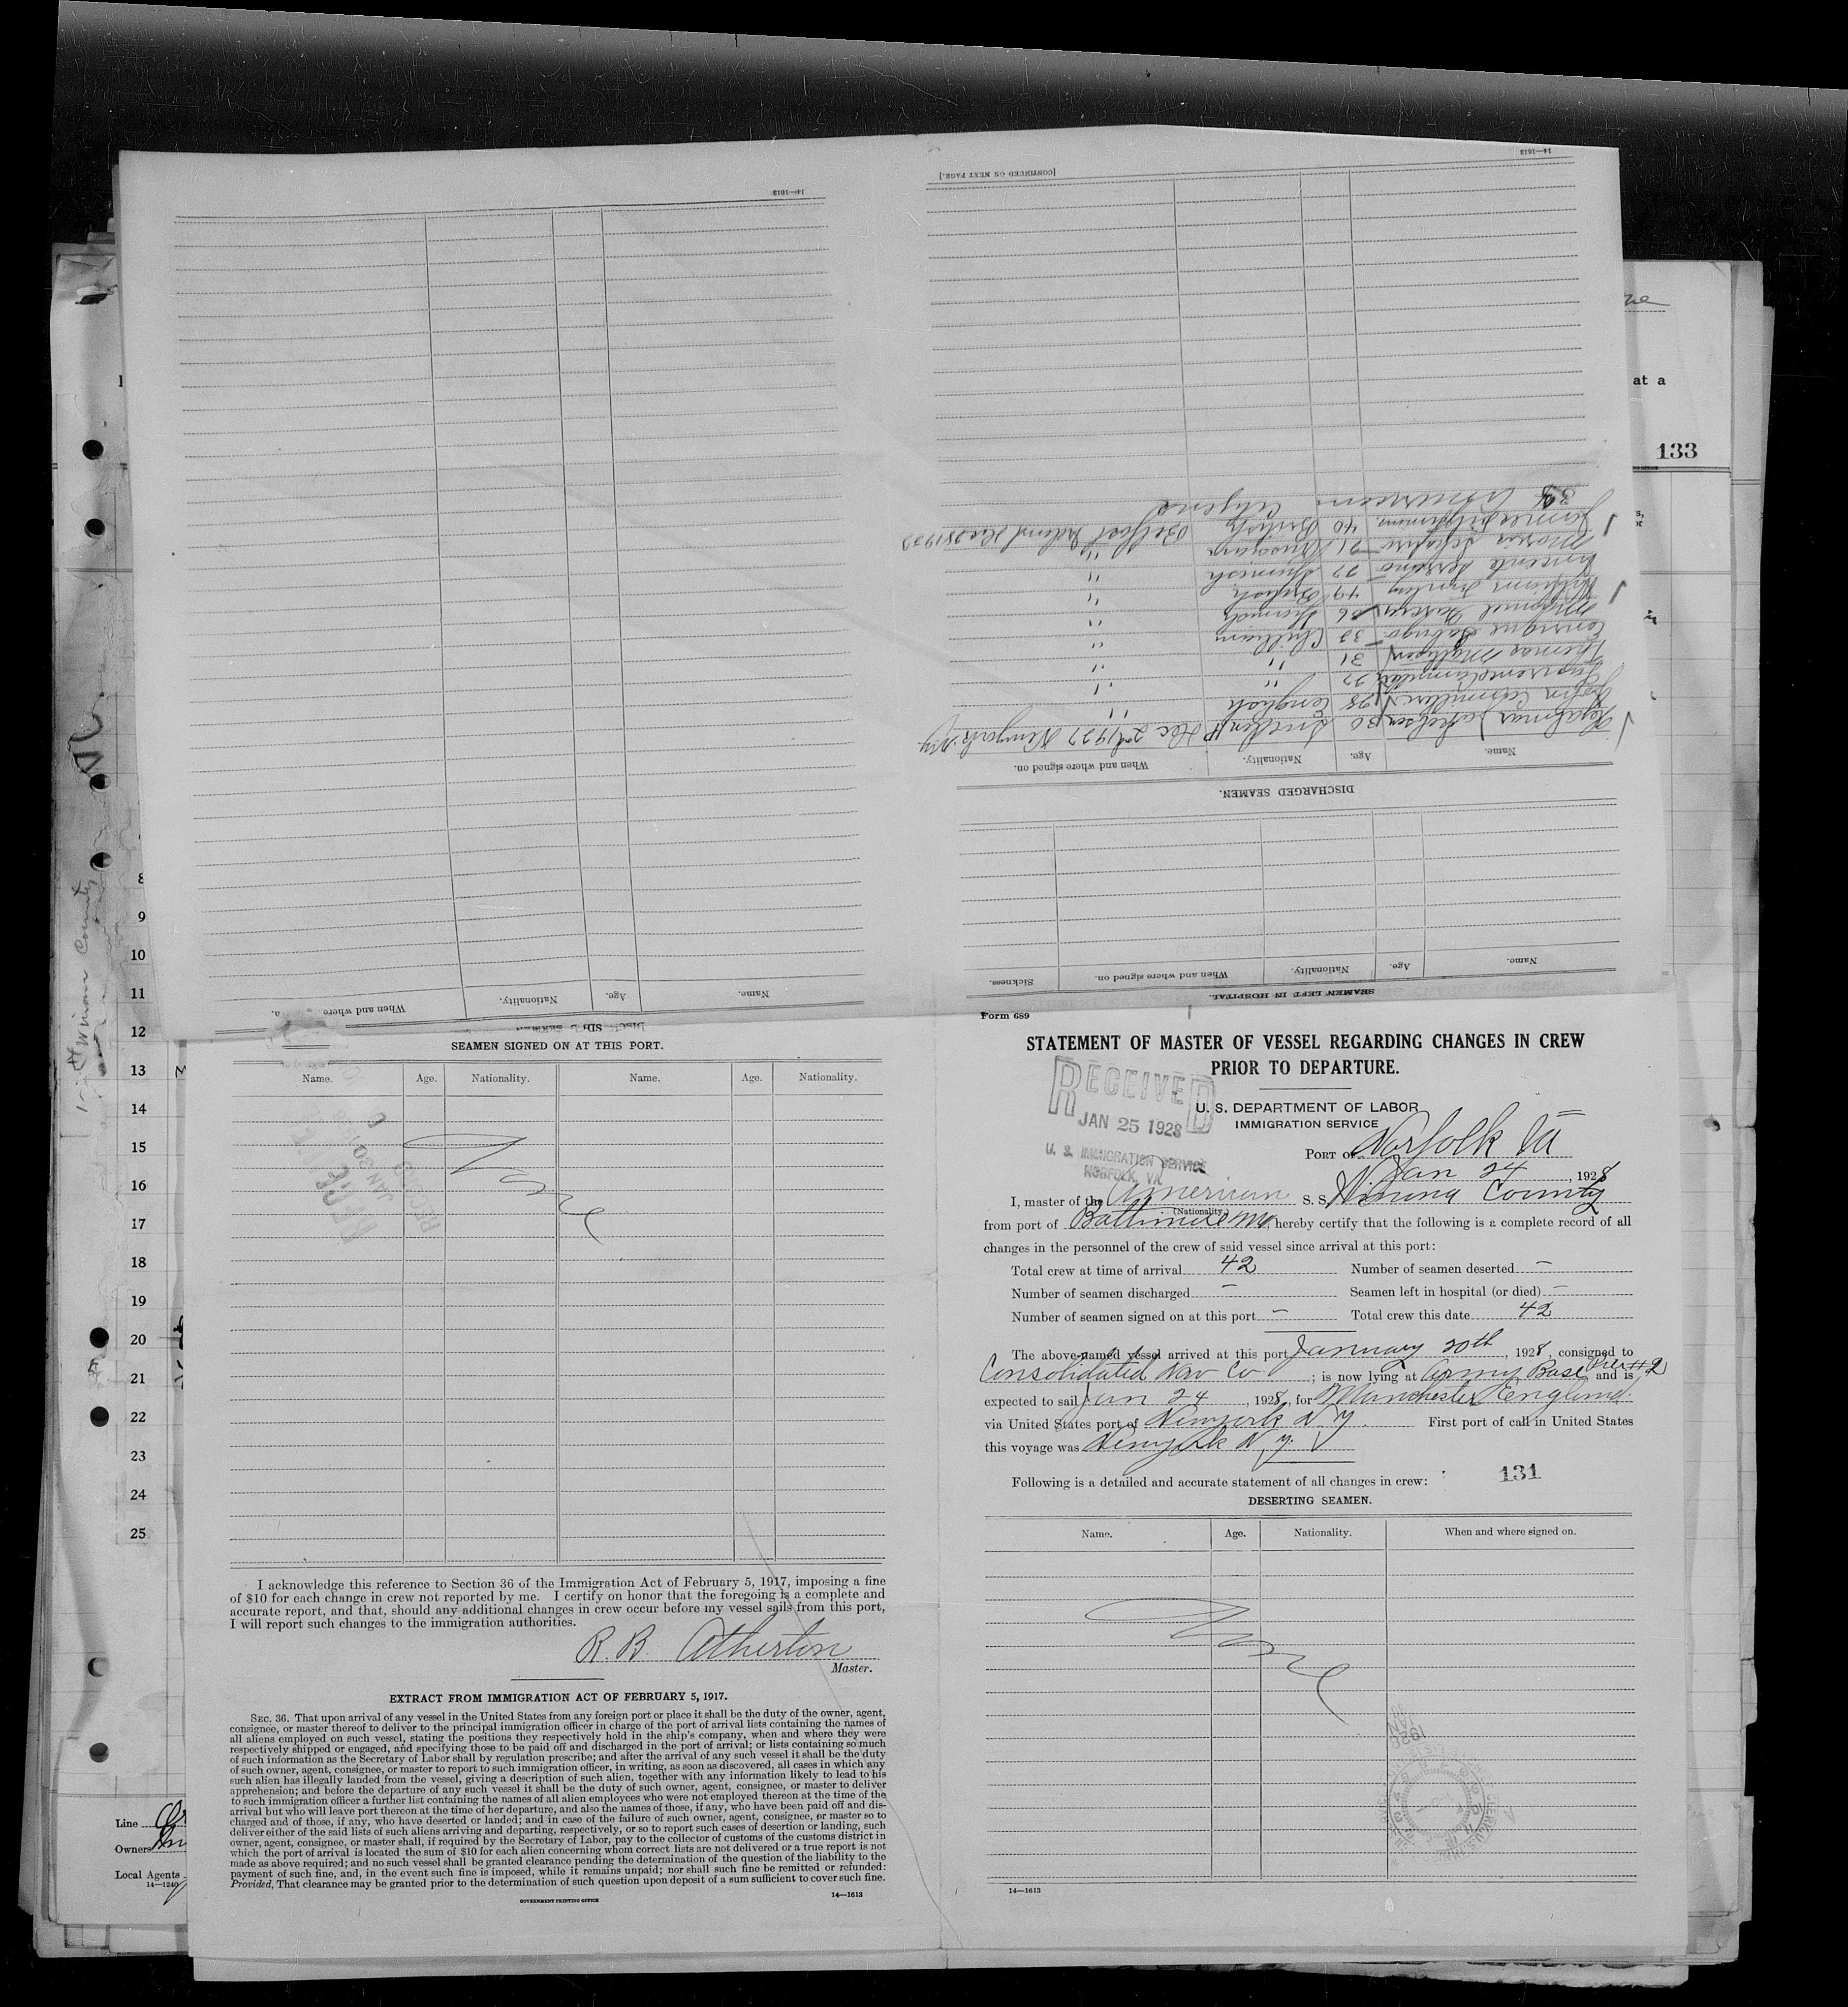 14—1613
[CONTINUED ON NEXT PAGE.]
14—1613
at a
133
DISCHARGED SEAMEN.
Name. Age. Nationality. When and where signed on.
30 Dec 2nd 1927 Newyork NY
John 28 English "
27 " "
Thomas 31 " "
Enrique 33 Chilian "
Manuel 36 "
William 49 "
Vicente 27 "
Mario 21 "
James Fitzsimmons 40 British Belfast Ireland Dec 28 1927
American Citizens
SEAMEN LEFT IN HOSPITAL.
Name. Age. Nationality. When and where signed on. Sickness.
Name. Age. Nationality. When and where
8
9
10
11
12
13
14
15
16
17
18
19
20
21
22
23
24
25
Line
Owners
Local Agents
14—1240
SEAMEN SIGNED ON AT THIS PORT.
Name. Age. Nationality. Name. Age. Nationality.
None
I acknowledge this reference to Section 36 of the Immigration Act of February 5, 1917, imposing a fine
of $10 for each change in crew not reported by me. I certify on honor that the foregoing is a complete and
accurate report, and that, should any additional changes in crew occur before my vessel sails from this port,
I will report such changes to the immigration authorities.
R. B. Atherton
Master.
EXTRACT FROM IMMIGRATION ACT OF FEBRUARY 5, 1917.
SEC. 36. That upon arrival of any vessel in the United States from any foreign port or place it shall be the duty of the owner, agent,
consignee, or master thereof to deliver to the principal immigration officer in charge of the port of arrival lists containing the names of
all aliens employed on such vessel, stating the positions they respectively hold in the ship's company, when and where they were
respectively shipped or engaged, and specifying those to be paid off and discharged in the port of arrival; or lists containing so much
of such information as the Secretary of Labor shall by regulation prescribe; and after the arrival of any such vessel it shall be the duty
of such owner, agent, consignee, or master to report to such immigration officer, in writing, as soon as discovered, all cases in which any
such alien has illegally landed from the vessel, giving a description of such alien, together with any information likely to lead to his
apprehension; and before the departure of any such vessel it shall be the duty of such owner, agent, consignee, or master to deliver
to such immigration officer a further list containing the names of all alien employees who were not employed thereon at the time of the
arrival but who will leave port thereon at the time of her departure, and also the names of those, if any, who have been paid off and dis-
charged and of those, if any, who have deserted or landed; and in case of the failure of such owner, agent, consignee, or master so to
deliver either of the said lists of such aliens arriving and departing, respectively, or so to report such cases of desertion or landing, such
owner, agent, consignee, or master shall, if required by the Secretary of Labor, pay to the collector of customs of the customs district in
which the port of arrival is located the sum of $10 for each alien concerning whom correct lists are not delivered or a true report is not
made as above required; and no such vessel shall be granted clearance pending the determination of the question of the liability to the
payment of such fine, and, in the event such fine is imposed, while it remains unpaid; nor shall such fine be remitted or refunded:
Provided, That clearance may be granted prior to the determination of such question upon deposit of a sum sufficient to cover such fine.
GOVERNMENT PRINTING OFFICE
14—1613
Form 689
STATEMENT OF MASTER OF VESSEL REGARDING CHANGES IN CREW
PRIOR TO DEPARTURE.
RECEIVED
JAN 25 1928
U. S. IMMIGRATION SERVICE
NORFOLK, VA.
U. S. DEPARTMENT OF LABOR
IMMIGRATION SERVICE
PORT OF Norfolk Va
Jan 24, 1928
I, master of the American S. S. Winona County
(Nationality.)
from port of Baltimore Md, hereby certify that the following is a complete record of all
changes in the personnel of the crew of said vessel since arrival at this port:
Total crew at time of arrival 42 Number of seamen deserted —
Number of seamen discharged — Seamen left in hospital (or died) —
Number of seamen signed on at this port — Total crew this date 42
The above-named vessel arrived at this port January 20th, 1928, consigned to
Consolidated Nav Co; is now lying at Army Base Pier #2 and is
expected to sail Jan 24, 1928, for Manchester England.
via United States port of Newyork N Y. First port of call in United States
this voyage was Newyork N. Y.
Following is a detailed and accurate statement of all changes in crew: 131
DESERTING SEAMEN.
Name. Age. Nationality. When and where signed on.
None
14—1613